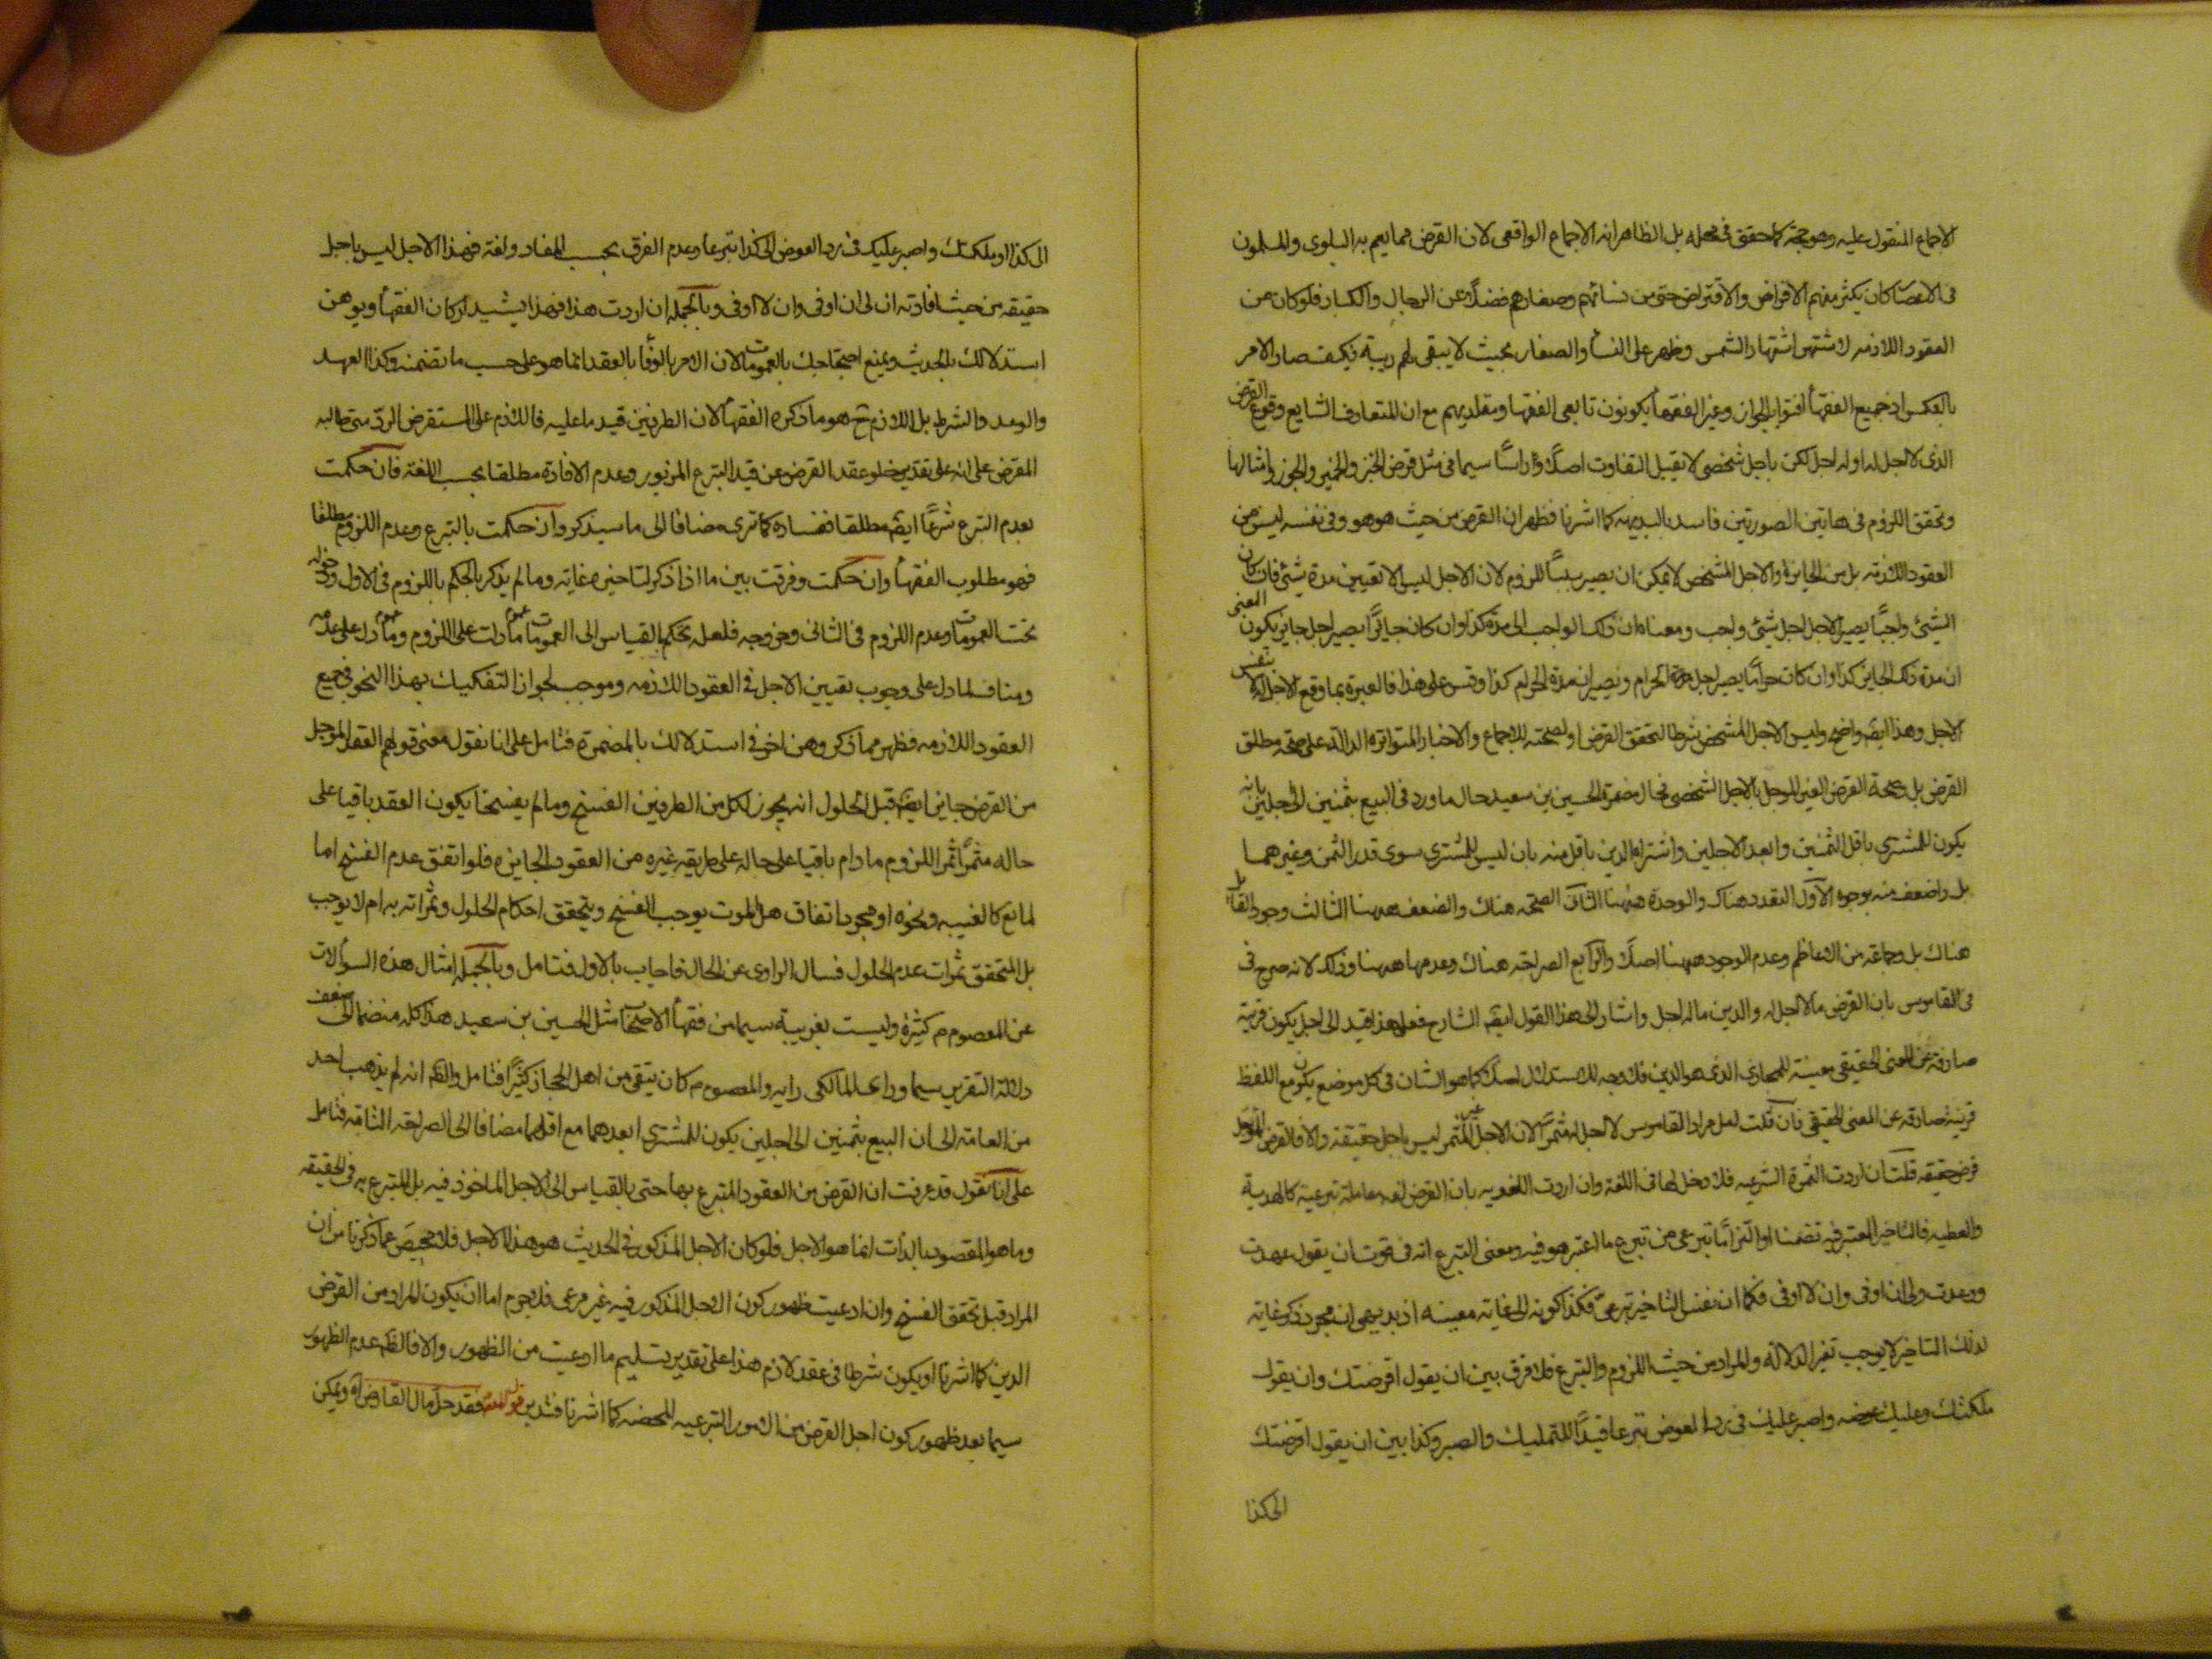 الاجماع المنقول عليه وهو حجة كما حقق فى محله بل الظاهر انه الاجماع الواقعى لان القرض مما يعم به البلوى والمسلمون
فى الاعصار كان يكثر منهم الاقراض والاقتراض حتى من نسائهم وصغارهم فضلا عن الرجال والكبار فلو كان من
العقود اللازمه لاشتهر اشتهار الشمس وظهر على النسأ والصغار بحيث لا يبقى لهم ريبة فكيف صار الامر
بالعكس اذ جميع الفقهأ افتوا بالجواز وغير الفقهأ يكونون تابعى الفقهأ ومقلديهم مع ان المتعارف الشايع وقوع القرض
الذى لا اجل له او له اجل لكن باجل شخصى لا يقبل التفاوت اصلا وراسا سيما فى مثل قرض الخبز والخمير والجوز وامثالها
وتحقق اللزوم فى هاتين الصورتين فاسد بالبديهه كما اشرنا فظهر ان القرض من حيث هو هو وفى نفسه ليس من
العقود اللازمه بل من الجايزة والاجل المشخص لا يمكن ان يصير سببا للزوم لان الاجل ليس الا تعيين مدة شئ فان كان
الشئ واجبا يصير الاجل اجل شئ واجب ومعناه ان ذلك الواجب الى مدة كذا وان كان جايزا يصير اجل جايز يكون المعنى
ان مدة ذلك الجايز كذا وان كان حراما يصير اجل مدة الحرام ويصير ان مدة الحرام كذا وقس على هذا فالعبرة بما وقع الاجل له لا بنفس
الاجل وهذا ايضا واضح وليس الاجل المشخص شرطا لتحقق القرض او لصحته للاجماع والاخبار المتواتره الدالة على صحة مطلق
القرض بل وصحة القرض الغير المؤجل بالاجل الشخصى فحال مضمرة الحسين بن سعيد حال ما ورد فى البيع بثمنين الى اجلين بانه
يكون للمشترى باقل الثمنين وابعد الاجلين واشتراط الدين باقل منه بان ليس للمشترى سوى قدر الثمن وغيرهما
بل واضعف منه بوجوه الاول التعدد هناك والوحدة ههنا الثانى الصحة هناك والضعف ههنا الثالث وجود القائل
هناك بل وجماعة من الاعاظم وعدم الوجود ههنا اصلا والرابع الصراحة هناك وعدمها ههنا وذلك لانه صرح فى
فى القاموس بان القرض ما لا اجل له والدين ما له اجل واشار الى هذا القول ايضا الشارح فعلى هذا قيد الى اجل يكون قرينة
صارفة عن المعنى الحقيقى معينة للمجازى الذى هو الدين فلا وجه للاستدلال اصلا كما هو الشان فى كل موضع يكون مع اللفظ
قرينة صارفة عن المعنى الحقيقى فان قلت لعل مراد القاموس لا اجل له مثمرا لان الاجل الغير المثمر ليس باجل حقيقة والا فالقرض المؤجل
قرض حقيقه قلت ان اردت الثمرة الشرعيه فلا دخل لها فى اللغة وان اردت اللغويه بان القرض لغه معاملة تبرعية كالهدية
والعطيه فالتاخير المعتبر فيه تضمنا او التزاما تبرعى من تبرع ما اعتبر هو فيه ومعنى التبرع انه فى قوت ان يقول عهدت
ووعدت ولى ان اوفى وان لا اوفى فكما ان نفس التاخير تبرعى فكذا كونه الى غاية معينه اذ بديهى ان مجرد ذكر غاية
لذلك التاخير لا يوجب تغير الدلالة والمراد من حيث اللزوم والتبرع فلا فرق بين ان يقول اقرضتك وان يقول
ملكتك وعليك عوضه واصبر عليك فى رد العوض تبرعا قيدا للتمليك والصبر وكذا بين ان يقول اقرضتك
الى كذا
الى كذا او ملكتك واصبر عليك فى رد العوض الى كذا تبرعا وعدم الفرق بحسب المفاد ولغة فهذا الاجل ليس باجل
حقيقه من حيث افادته ان لى ان اوفى وان لا اوفى وبالجمله ان اردت هذا فهذا يشيد اركان الفقهأ ويوهن
استدلالك بالحديث ويمنع احتجاجك بالعمومات لان الامر بالوفأ بالعقد انما هو على حسب ما تضمنه وكذا العهد
والوعد والشرط بل اللازم ح هو ما ذكره الفقهأ لان الطرفين قيد ما عليه فاللازم على المستقرض الرد متى طالبه
المقرض على انه على تقدير خلو عقد القرض عن قيد التبرع المزبور وعدم الافادة مطلقا بحسب اللغة فان حكمت
بعدم التبرع شرعا ايضا مطلقا ففساده كما ترى مضافا الى ما سيذكر وان حكمت بالتبرع وعدم اللزوم مطلقا
فهو مطلوب الفقهأ وان حكمت وفرقت بين ما اذا ذكر لتاخيره غاية وما لم يذكر بالحكم باللزوم فى الاول ودخوله
تحت العمومات وعدم اللزوم فى الثانى وخروجه فلعله تحكم بالقياس الى العمومات عموم ما دلت على اللزوم وعموم ما دل على عدمه
ومناف لما دل على وجوب تعيين الاجل فى العقود اللازمه وموجب لجواز التفكيك بهذا النحو فى جميع
العقود اللازمه فظهر مما ذكر وهن اخر فى استدلالك بالمضمرة فتامل على انا نقول معنى قولهم العقد المؤجل
من القرض جايز ايضا قبل الحلول انه يجوز لكل من الطرفين الفسخ وما لم يفسخا يكون العقد باقيا على
حاله مثمرا ثمر اللزوم ما دام باقيا على حاله على طريقة غيره من العقود الجايزه فلو اتفق عدم الفسخ اما
لمانع كالغيبه ونحوه او مجرد اتفاق هل الموت يوجب الفسخ ويتحقق احكام الحلول وثمراته به ام لا يوجب
بل المتحقق ثمرات عدم الحلول فسال الراوى عن الحال فاجاب بالاول فتامل وبالجمله امثال هذه السوالات
عن المعصوم م كثيرة وليست بغريبة سيما من فقهأ الاصحاب مثل الحسين بن سعيد هذا كله منضما الى ضعف
دلالة التقرير سيما وراى المالكى رايه والمعصوم م كان يتقى من اهل الحجاز كثيرا فتامل والظ انه لم يذهب احد
من العامة الى ان البيع بثمنين الى اجلين يكون للمشترى ابعدهما مع اقلهما مضافا الى الصراحة التامة فتامل
على انا نقول قد عرفت ان القرض من العقود المتبرع بها حتى بالقياس الى الاجل الماخوذ فيه بل المتبرع به فى الحقيقه
وما هو المقصود بالذات انما هو الاجل فلو كان الاجل المذكور فى الحديث هو هذا الاجل فلا محيص عما ذكرنا من ان
المراد قبل تحقق الفسخ وان ادعيت ظهور كون الاجل المذكور فيه غير مرعى فلا جرم اما ان يكون المراد من القرض
الدين كما اشرنا او يكون شرطا فى عقد لازم هذا على تقدير تسليم ما ادعيت من الظهور والا فالظ عدم الظهور
سيما بعد ظهور كون اجل القرض من الامور التبرعيه المحضه كما اشرنا فتدبر فقد حل مال القارض اه ويمكن